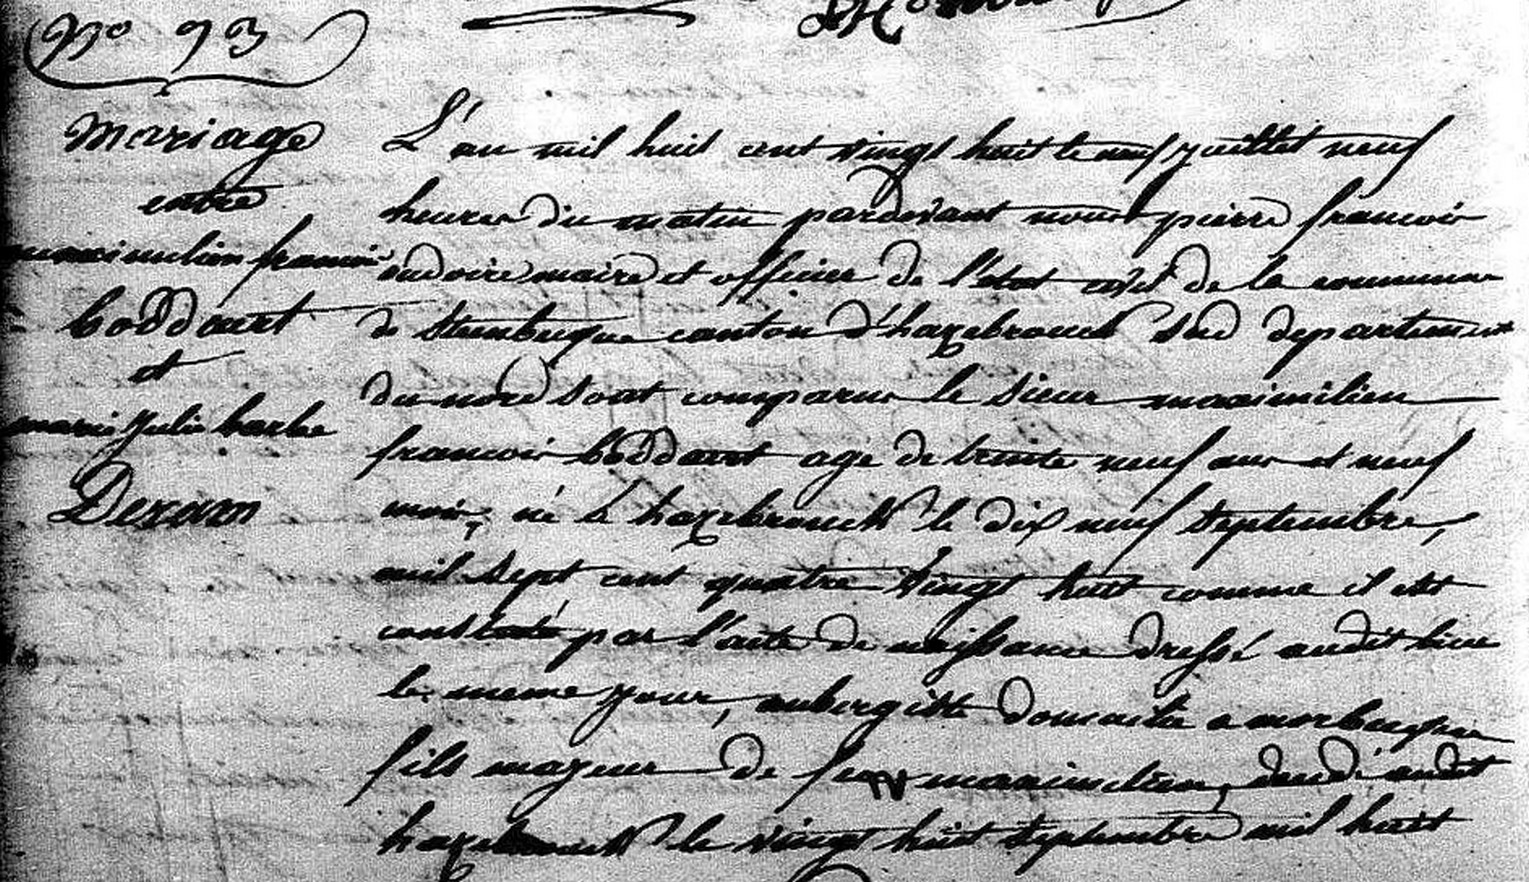 No 93
Mariage
entre
maximilien francois
boddaert
et
marie Julie barbe
Dezam
L'an mil huit cent vingt huit le neuf juillet neuf
heures du matin pardevant nous pierre francois
maire et officier de l'état civil de la commune
de Steenbecque canton d'hazebrouck Sud departement
du nord sont comparus le sieur maximilien
francois boddaert age de trente neuf ans et neuf
mois, né à hazebrouck le dix neuf septembre,
mil sept cent quatre vingt huit comme il est
constaté par l'acte de naissance dressé audit lieu
le meme jour, aubergiste domicilié a morbecque
fils majeur de feu maximilien, decedé audit
hazebrouck le vingt huit septembre mil huit